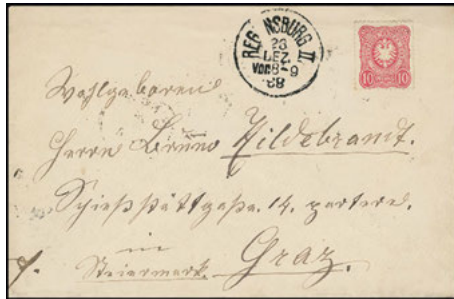 REGENSBURG II.
23
DEZ.
Vor 8-9
88
10 10
Wohlgeboren
Herrn Bruno Hildebrandt.
Schießstättgasse. 14. partere.
in
Steiermark. Graz.